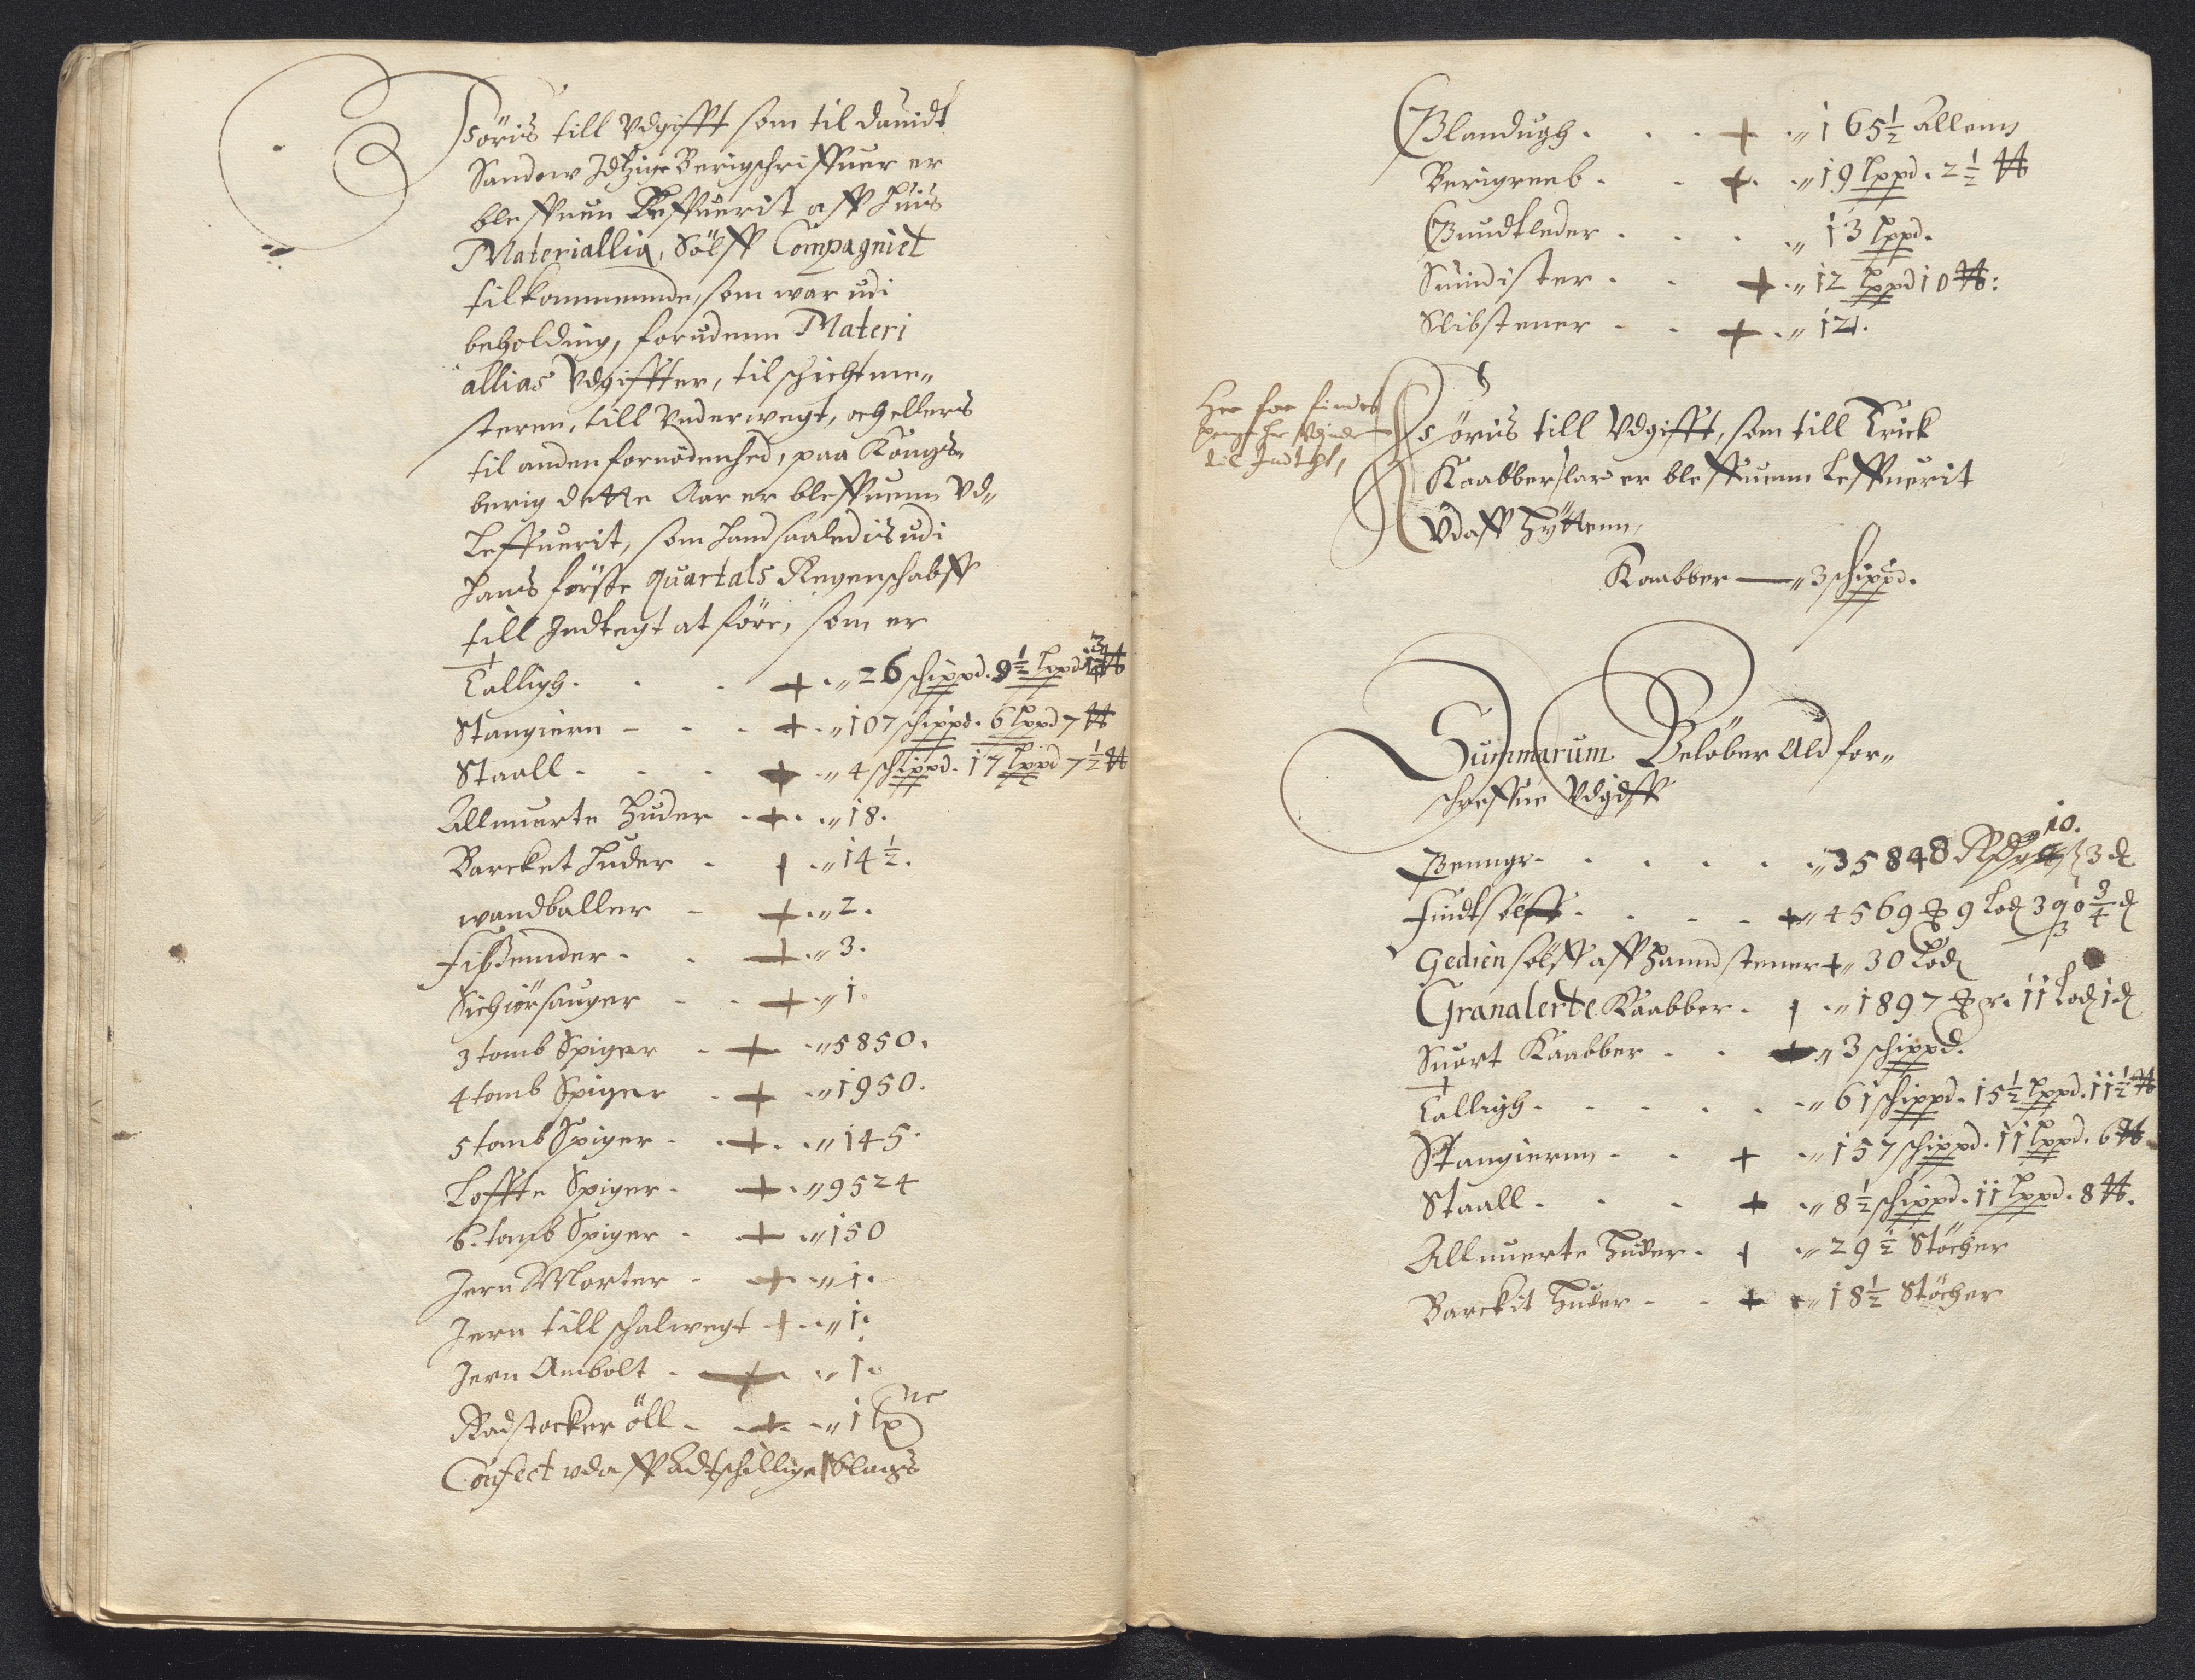 Föris till Vdgifft som til Dauidt
Sandow Itzige Berigschriffuer er
bleffuen Leffuerit aff huis
Materiallia, Sölff Compagniet
tilkommende, som war udi
beholding, foruden Materi
allias Vdgiffter, til schichtme„
steren, till Underwegt, och ellers
til anden fornödenhed, paa Kongs„
berig dette Aar er bleffuenn Vd„
Leffuerit, som hand saaledis udi
hans förste Quartals Regenschabff
till Indtegt at före, som er
Talligh . . . + „ 26 schippd. 9½ Lppd
Stangiern - . . + „ 107 schippd. 6 Lppd 7 ℔
Staall . . . + „ 4 schippd. 17 Lppd 7½ ℔
Allmuerte Huder . + . „ 18.
Barcket Huder . + „ 14½.
wandballier - + „ 2.
+ „ 3.
+ „ 1.
3 tomb Spiger - + „ 5850.
4 tomb Spiger . + „ 1950.
5 tomb Spiger . + „ 145.
Loffte Spiger . + „ 9524
6. tomb Spiger . + „ 150
Jern Morter - + „ 1.
Jern till schalwegt + „ 1.
Jern Ambolt . + „ 1.
Radstocker öll - + „ 1
Confect udaff Adtschillige slags
Blandugh . . . + „ 165½ Allenn
Berigreeb . . + „ 19 Lppd. 2½ ℔
Gundtleder . . . „ 13 Lppd.
+ „ 12 Lppd 10 ℔:
Slibstener - . + „ 12.
Her for findes
til Indtgt,
Föris till Vdgifft, som till Erick
Kaabberslar er bleffuenn Leffuerit
Vdaff Hÿttenn,
Kaabber — „ 3 schippd.
Summarum Belöber Ald for„
schreffne Vdgifft
Penge . . . . „ 35848 Rdr 10. ß 3 ₰
Findt sölff . . . + „ 4569 ℔ 9 Lod 3 q 0¾ ₰
Gedien sölff aff Hannd stener + „ 30 Lod
Granalerte Kaabber . + „ 1897 ℔ gr. 11 Lod 1 ₰
Suort Kaabber . . + „ 3 schippd.
Talligh . . . . „ 61 schippd. 15½ Lppd. 11½ ℔
Stangiernn . . + „ 157 schippd. 11 Lppd. 6 ℔
Staall . . . + „ 8½ schippd. 11 Lppd. 8 ℔.
Allmuerte Huder . + „ 29½ Stöcher
Barckit Huder - . + „ 18½ Stöcher